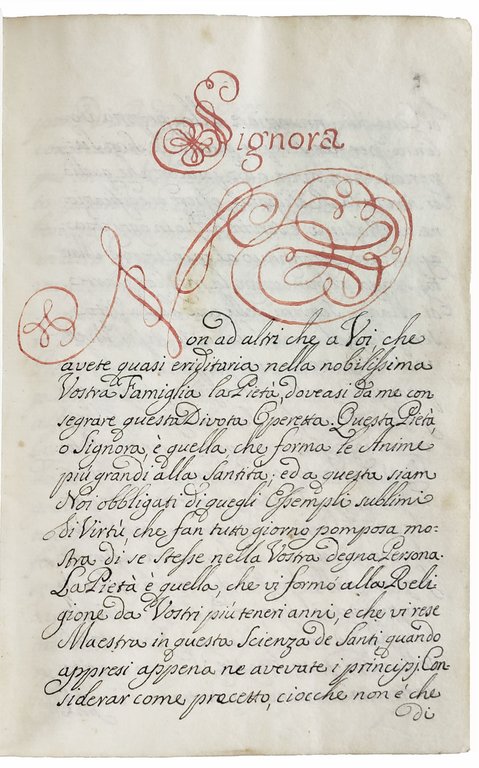 Signora
Non ad altri che a Voi, che
avete quasi ereditaria nella nobilissima
Vostra Famiglia la Pietà, doveasi da me con
segrare questa Divota Operetta. Questa Pietà,
o Signora, è quella, che forma le Anime
più grandi alla Santità; ed a questa siam
Noi obbligati di quegli Essempli sublimi
di Virtù, che fan tutto giorno pomposa mo-
stra di se stesse nella Vostra degna Persona.
La Pietà è quella, che vi formò alla Reli
gione da Vostri più teneri anni, e che vi rese
Maestra in questa Scienza de Santi, quando
appresi appena ne avevate i principj. Con-
siderar come precetto, ciocche non è che
di